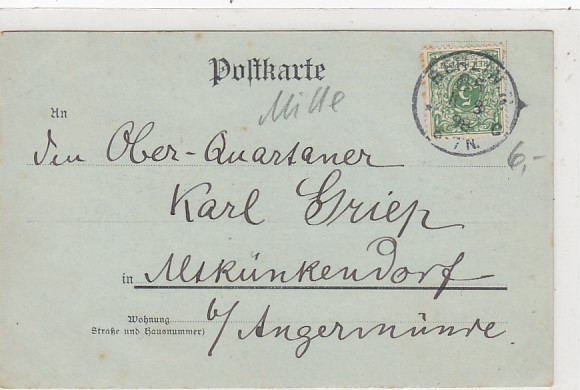 Postkarte
Mille
An
den Ober-Quartaner
Karl Griep
in Altkünkendorf
Wohnung
(Straße und Hausnummer)
b/ Angermünde.
BERLIN
5
98
7 N.
6,-